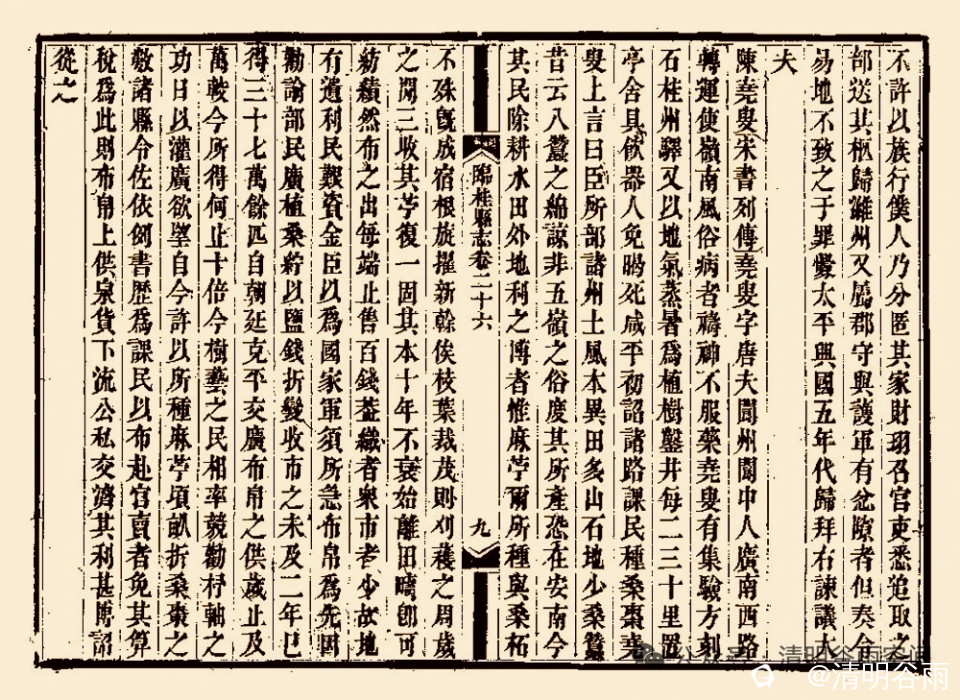 不許以族行僕人乃分匿其家財珝召官吏悉追取之
部送其柩歸濰州又屬郡守與護軍有忿隙者但奏令
易地不致之于罪釁太平興國五年代歸拜右諫議大
夫
陳堯叟宋書列傳堯叟字唐夫閬州閬中人廣南西路
轉運使嶺南風俗病者禱神不服藥堯叟有集驗方刻
石桂州驛又以地氣蒸暑爲植樹鑿井每二三十里置
亭舍具飲器人免暍死咸平初詔諸路課民種桑棗堯
叟上言曰臣所部諸州土風本異田多山石地少桑蠶
昔云八蠶之綿諒非五嶺之俗度其所產恐在安南今
其民除耕水田外地利之博者惟麻苧爾所種與桑柘
臨桂縣志卷二十六
九
不殊旣成宿根旋擢新榦俟枝葉裁茂則刈穫之周歲
之間三收其苧復一固其本十年不衰始離田疇卽可
紡績然布之出每端止售百錢葢織者衆市者少故地
有遺利民艱資金臣以爲國家軍須所急布帛爲先因
勸諭部民廣植桑紵以鹽錢折變收市之未及二年已
得三十七萬餘匹自朝廷克平交廣布帛之供歲止及
萬較今所得何止十倍今樹藝之民相率競勸杼軸之
功日以灌廣欲望自今許以所種麻苧頃畝折桑棗之
數諸縣令佐依例書歷爲課民以布赴官賣者免其算
稅爲此則布帛上供泉貨下流公私交濟其利甚博詔
從之
公众号·清明谷雨空间
@清明谷雨